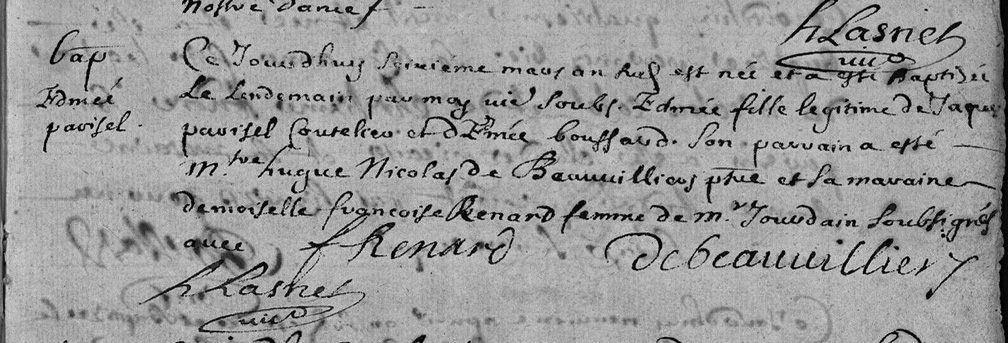 Nostre Dame
h Lasnet
vic
Bap
Edmée
parisel.
Ce Jourdhuy seixiéme mars an susd est née et a esté Baptisée
Le Lendemain par moy vic soubs. Edmée fille legitime de Jaques
parisel Coutelier et d'Edmée boussard. Son parrain a esté
M.tre hugue Nicolas de Beauvilliers ptre et la maraine
demoiselle francoise Renard femme de m.r Jourdain soubsignés
avec f Renard De beauvillier
h Lasnet
vic